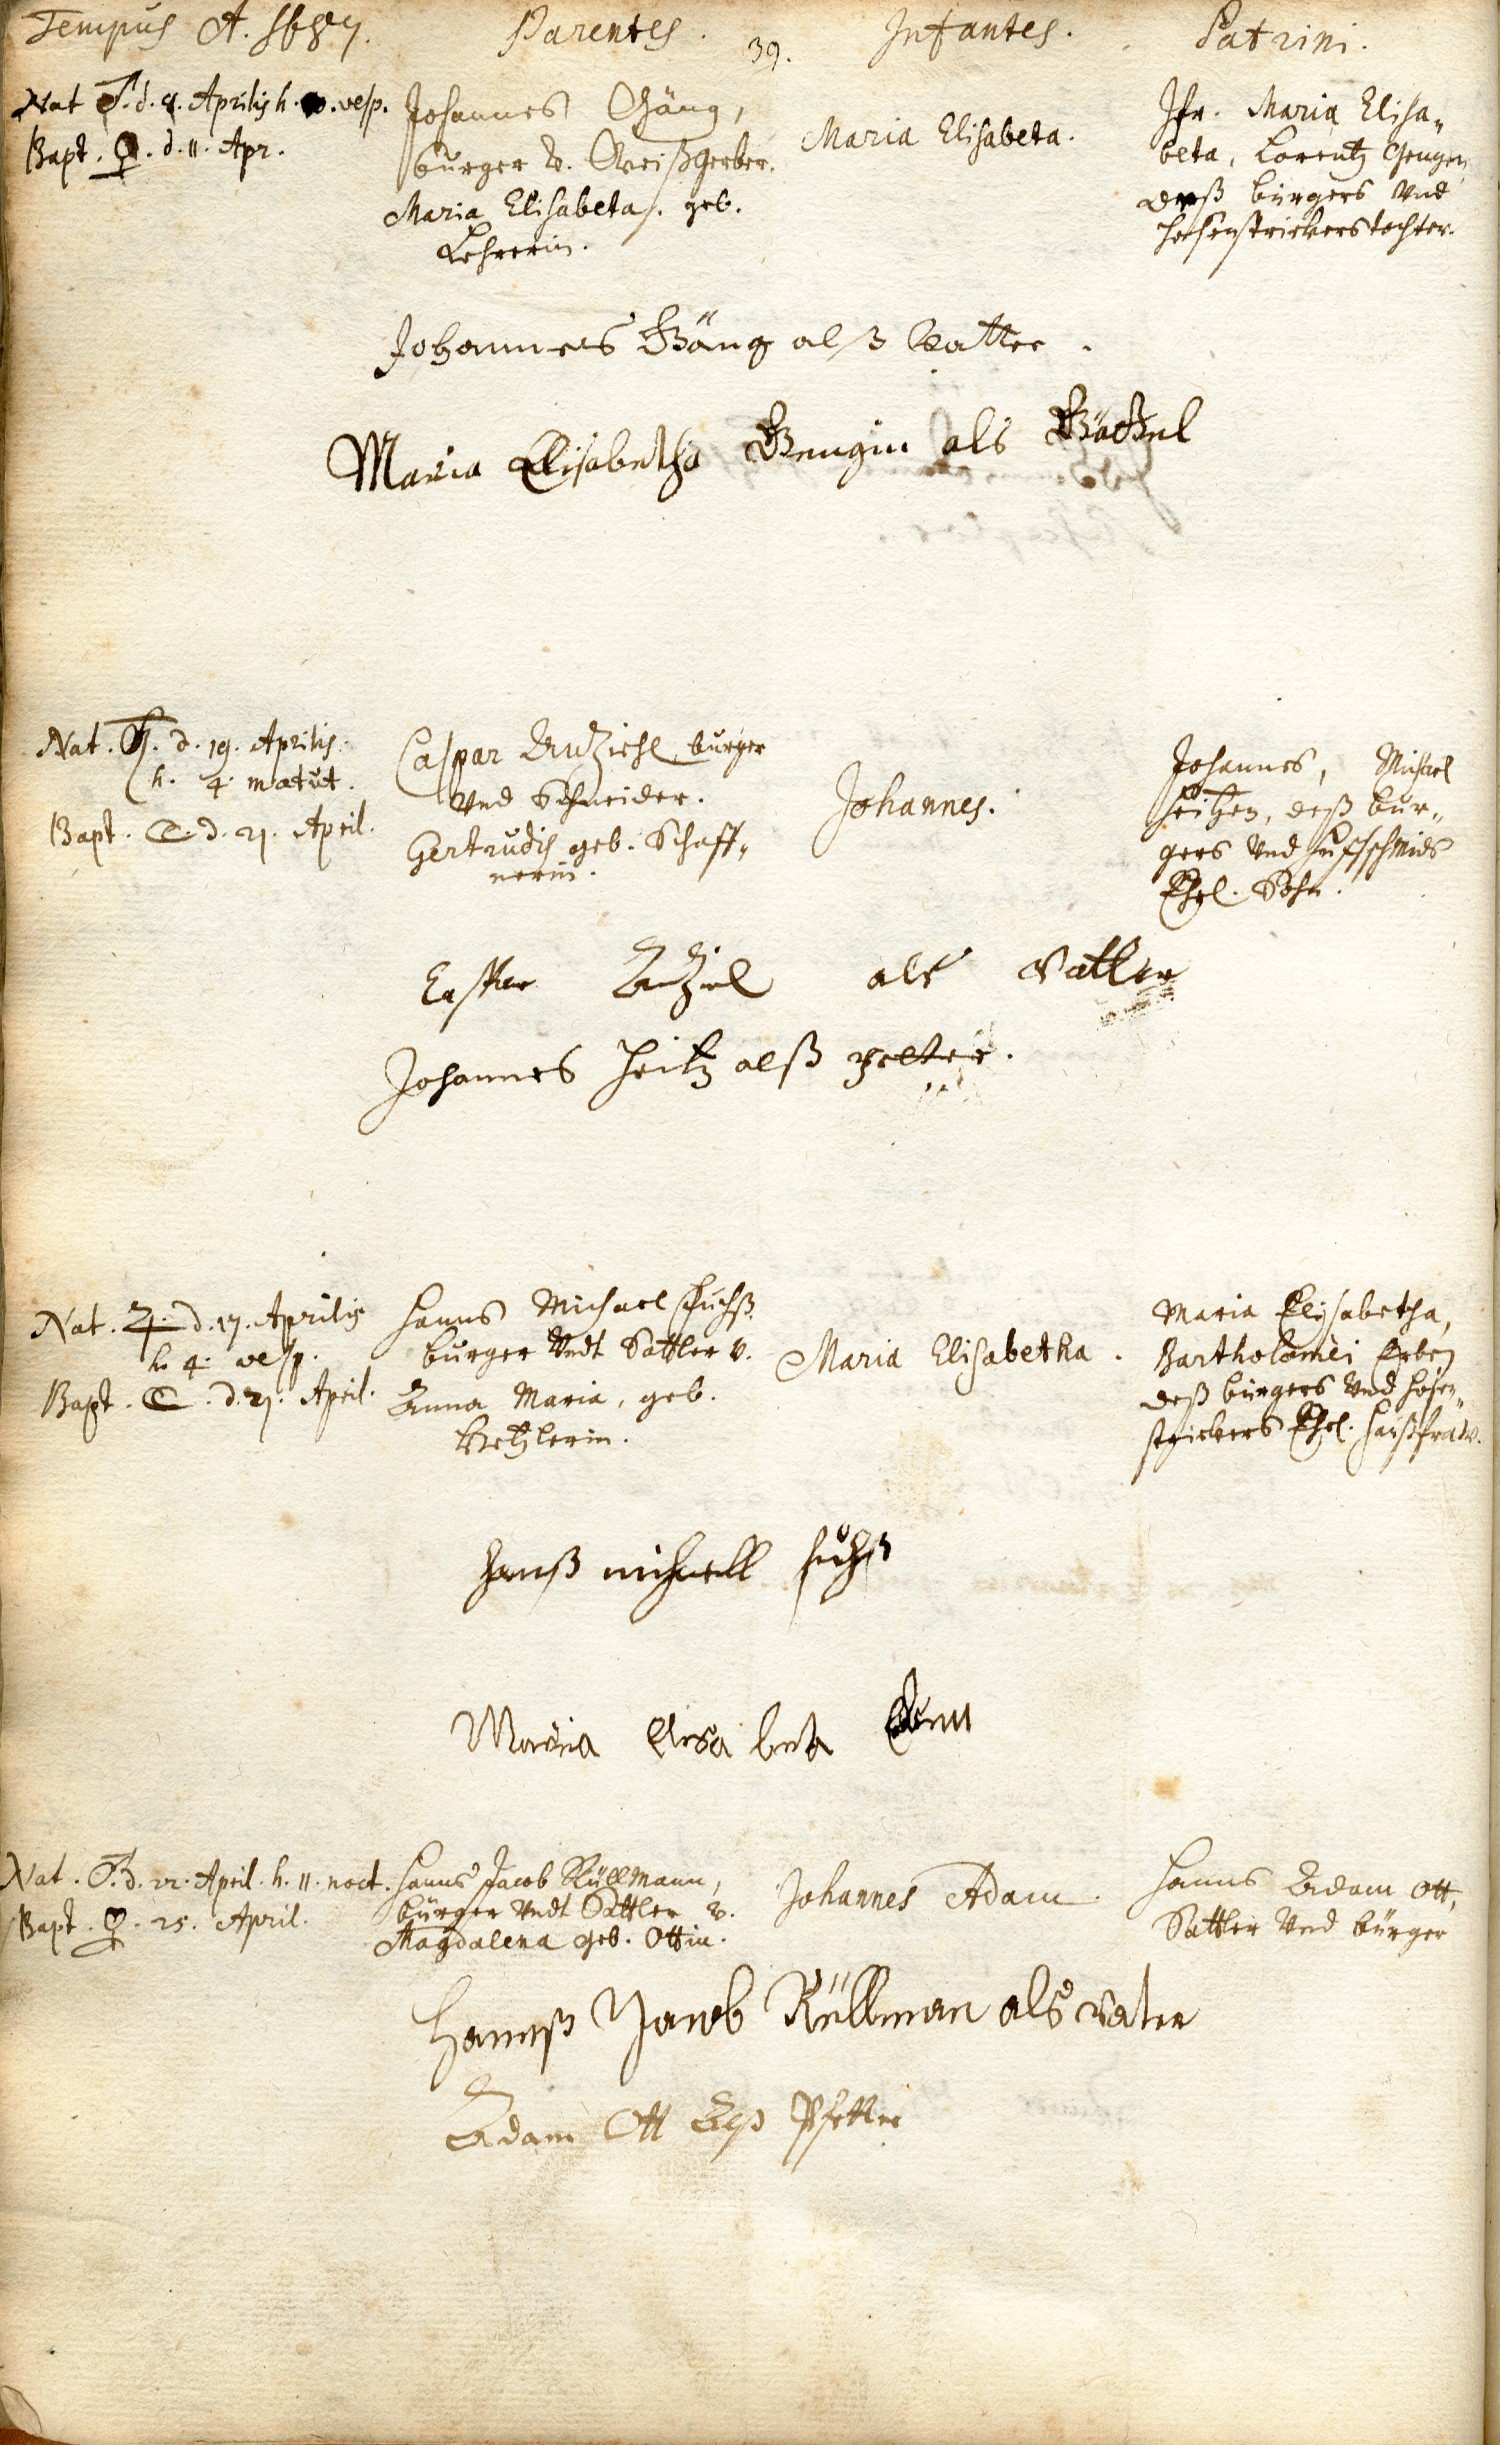 Tempus A. 1687.
Parentes.
39.
Infantes.
Patrini.
Nat ♂. d. 8. Aprilis h. . vesp.
Bapt. ♀. d. 11. Apr.
Johannes Gäng,
burger v. Weißgerber.
Maria Elisabeta. geb.
Lehrerin.
Maria Elisabeta.
Jfr. Maria Elisa„
beta, Lorentz Gengen
deß burgers Vnd
hosenstrickers tochter.
Johannes Gäng alß Vatter.
Maria Elisabetha Gengin als
Nat. ♄. d. 19. Aprilis.
h. 4. matut.
Bapt. ☾. d. 21. April.
Caspar burger
Vnd Schneider.
Gertrudis geb. Schaff„
nerin.
Johannes.
Johannes, Michael
Heitzen, deß bur„
gers Vnd Hufschmids
Ehel. Sohn.
Casper als Vatter
Johannes Heitz alß petter.
Nat. ♃. d. 17. Aprilis
h. 4. vesp.
Bapt. ☾. d. 21. April.
Hanns Michael Fuchß
burger Vndt Sattler v.
Anna Maria, geb.
Maria Elisabetha.
Maria Elisabetha,
Bartholomei Erben
deß burgers Vnd hosen„
strickers Ehel. haußfraw.
Hanß michaell fuchß
Maria Elisa beta
Nat. ♂. d. 22. April. h. 11. noct.
Bapt. ♀. 25. April.
Hanns Jacob Rüllmann,
bürger Vndt Sattler v.
Magdalena geb. Ottin.
Johannes Adam.
Hanns Adam Ott,
Sattler Vnd bürger
Hannß Jacob Rüllman als vater
Adam Ott Alß Pfetter